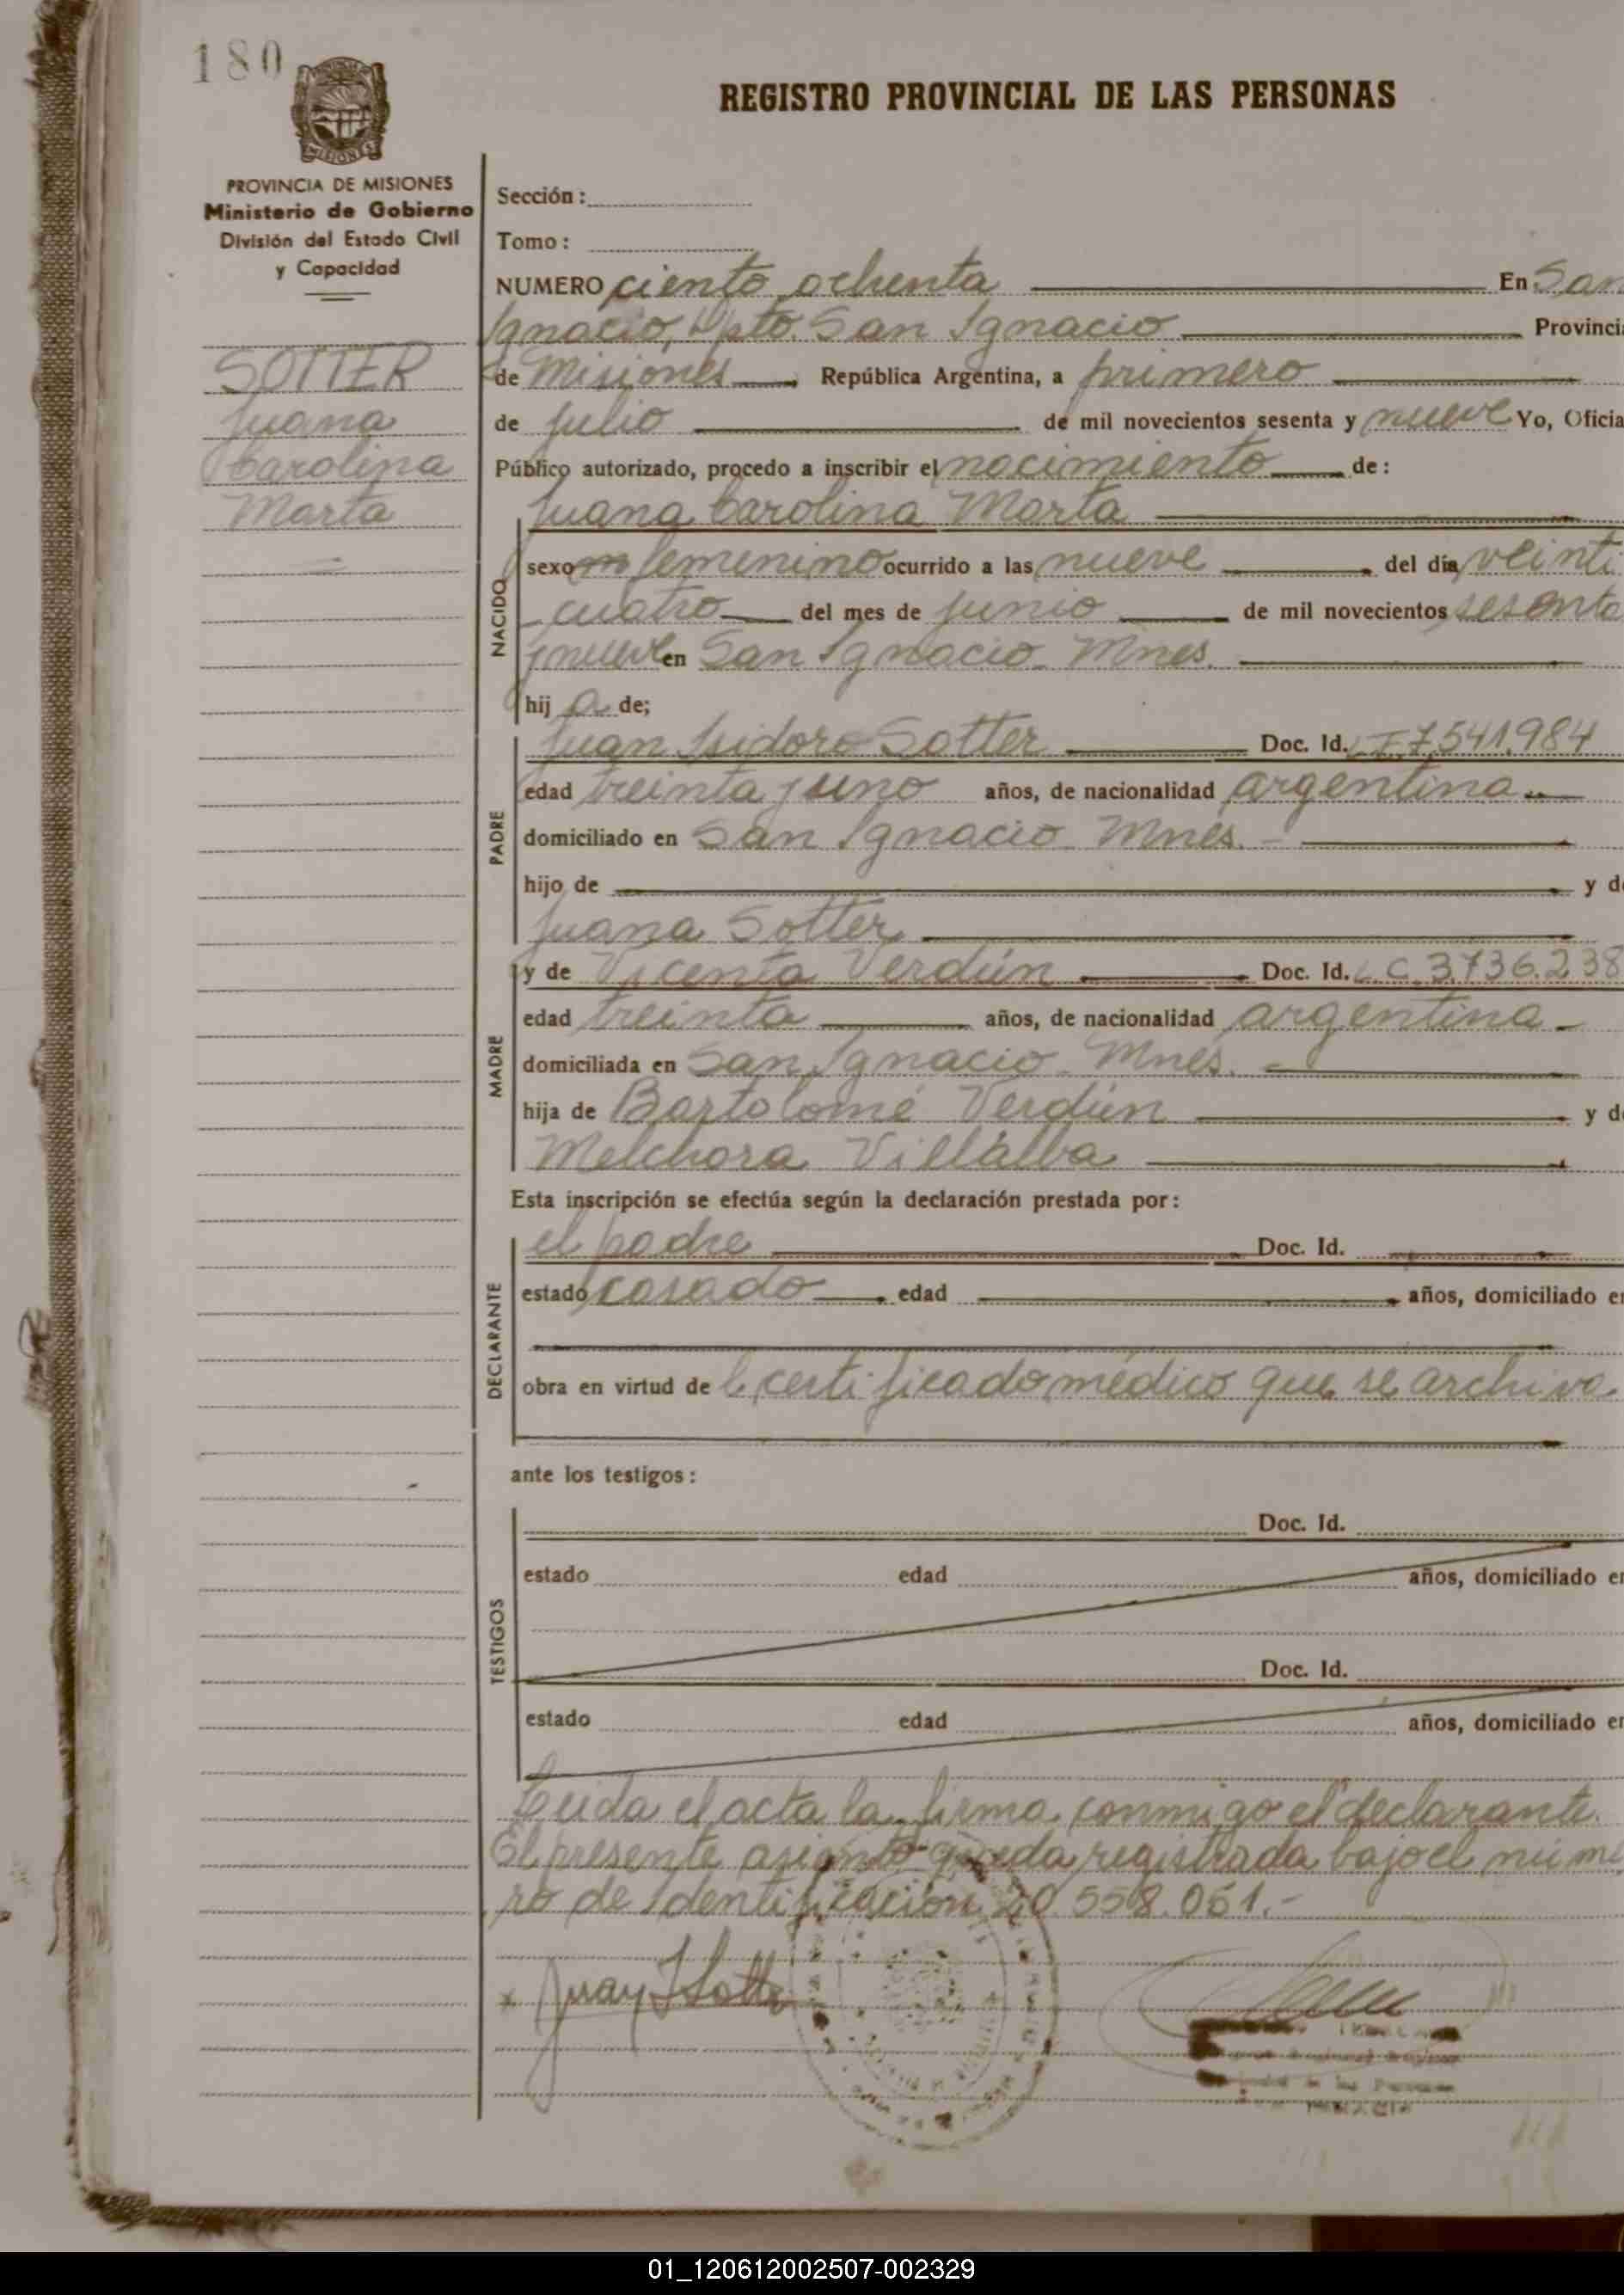 180
REGISTRO PROVINCIAL DE LAS PERSONAS
MISIONES
PROVINCIA DE MISIONES
Ministerio de Gobierno
División del Estado Civil
y Capacidad
SOTTER
Juana
Carolina
Marta
Sección:
Tomo:
NUMERO ciento ochenta En San
Ignacio, Dpto. San Ignacio Provinci
de Misiones República Argentina, a primero
de julio de mil novecientos sesenta y nueve Yo, Oficia
Público autorizado, procedo a inscribir el nacimiento de:
Juana Carolina Marta
NACIDO
sexo m femenino ocurrido a las nueve del día veinti
cuatro del mes de junio de mil novecientos sesenta
y nueve en San Ignacio Mnes.
hij a de;
PADRE
Juan Isidoro Sotter Doc. Id. 7.541.984
edad treinta y uno años, de nacionalidad argentina
domiciliado en San Ignacio Mnes. -
hijo de y de
Juana Sotter
MADRE
y de Vicenta Verdún Doc. Id. L C 3.736.238
edad treinta años, de nacionalidad argentina
domiciliada en San Ignacio Mnes.
hija de Bartolomé Verdún y de
Melchora Villalba
Esta inscripción se efectúa según la declaración prestada por:
DECLARANTE
el padre Doc. Id.
estado casado edad años, domiciliado en
obra en virtud de l certificado médico que se archiva
ante los testigos:
TESTIGOS
Doc. Id.
estado edad años, domiciliado en
Doc. Id.
estado edad años, domiciliado en
Leída el acta la firma conmigo el declarante.
El presente asiento queda registrada bajo el núme
ro de Identificación 20.558.051.-
x Juan I Sotter
01_120612002507-002329